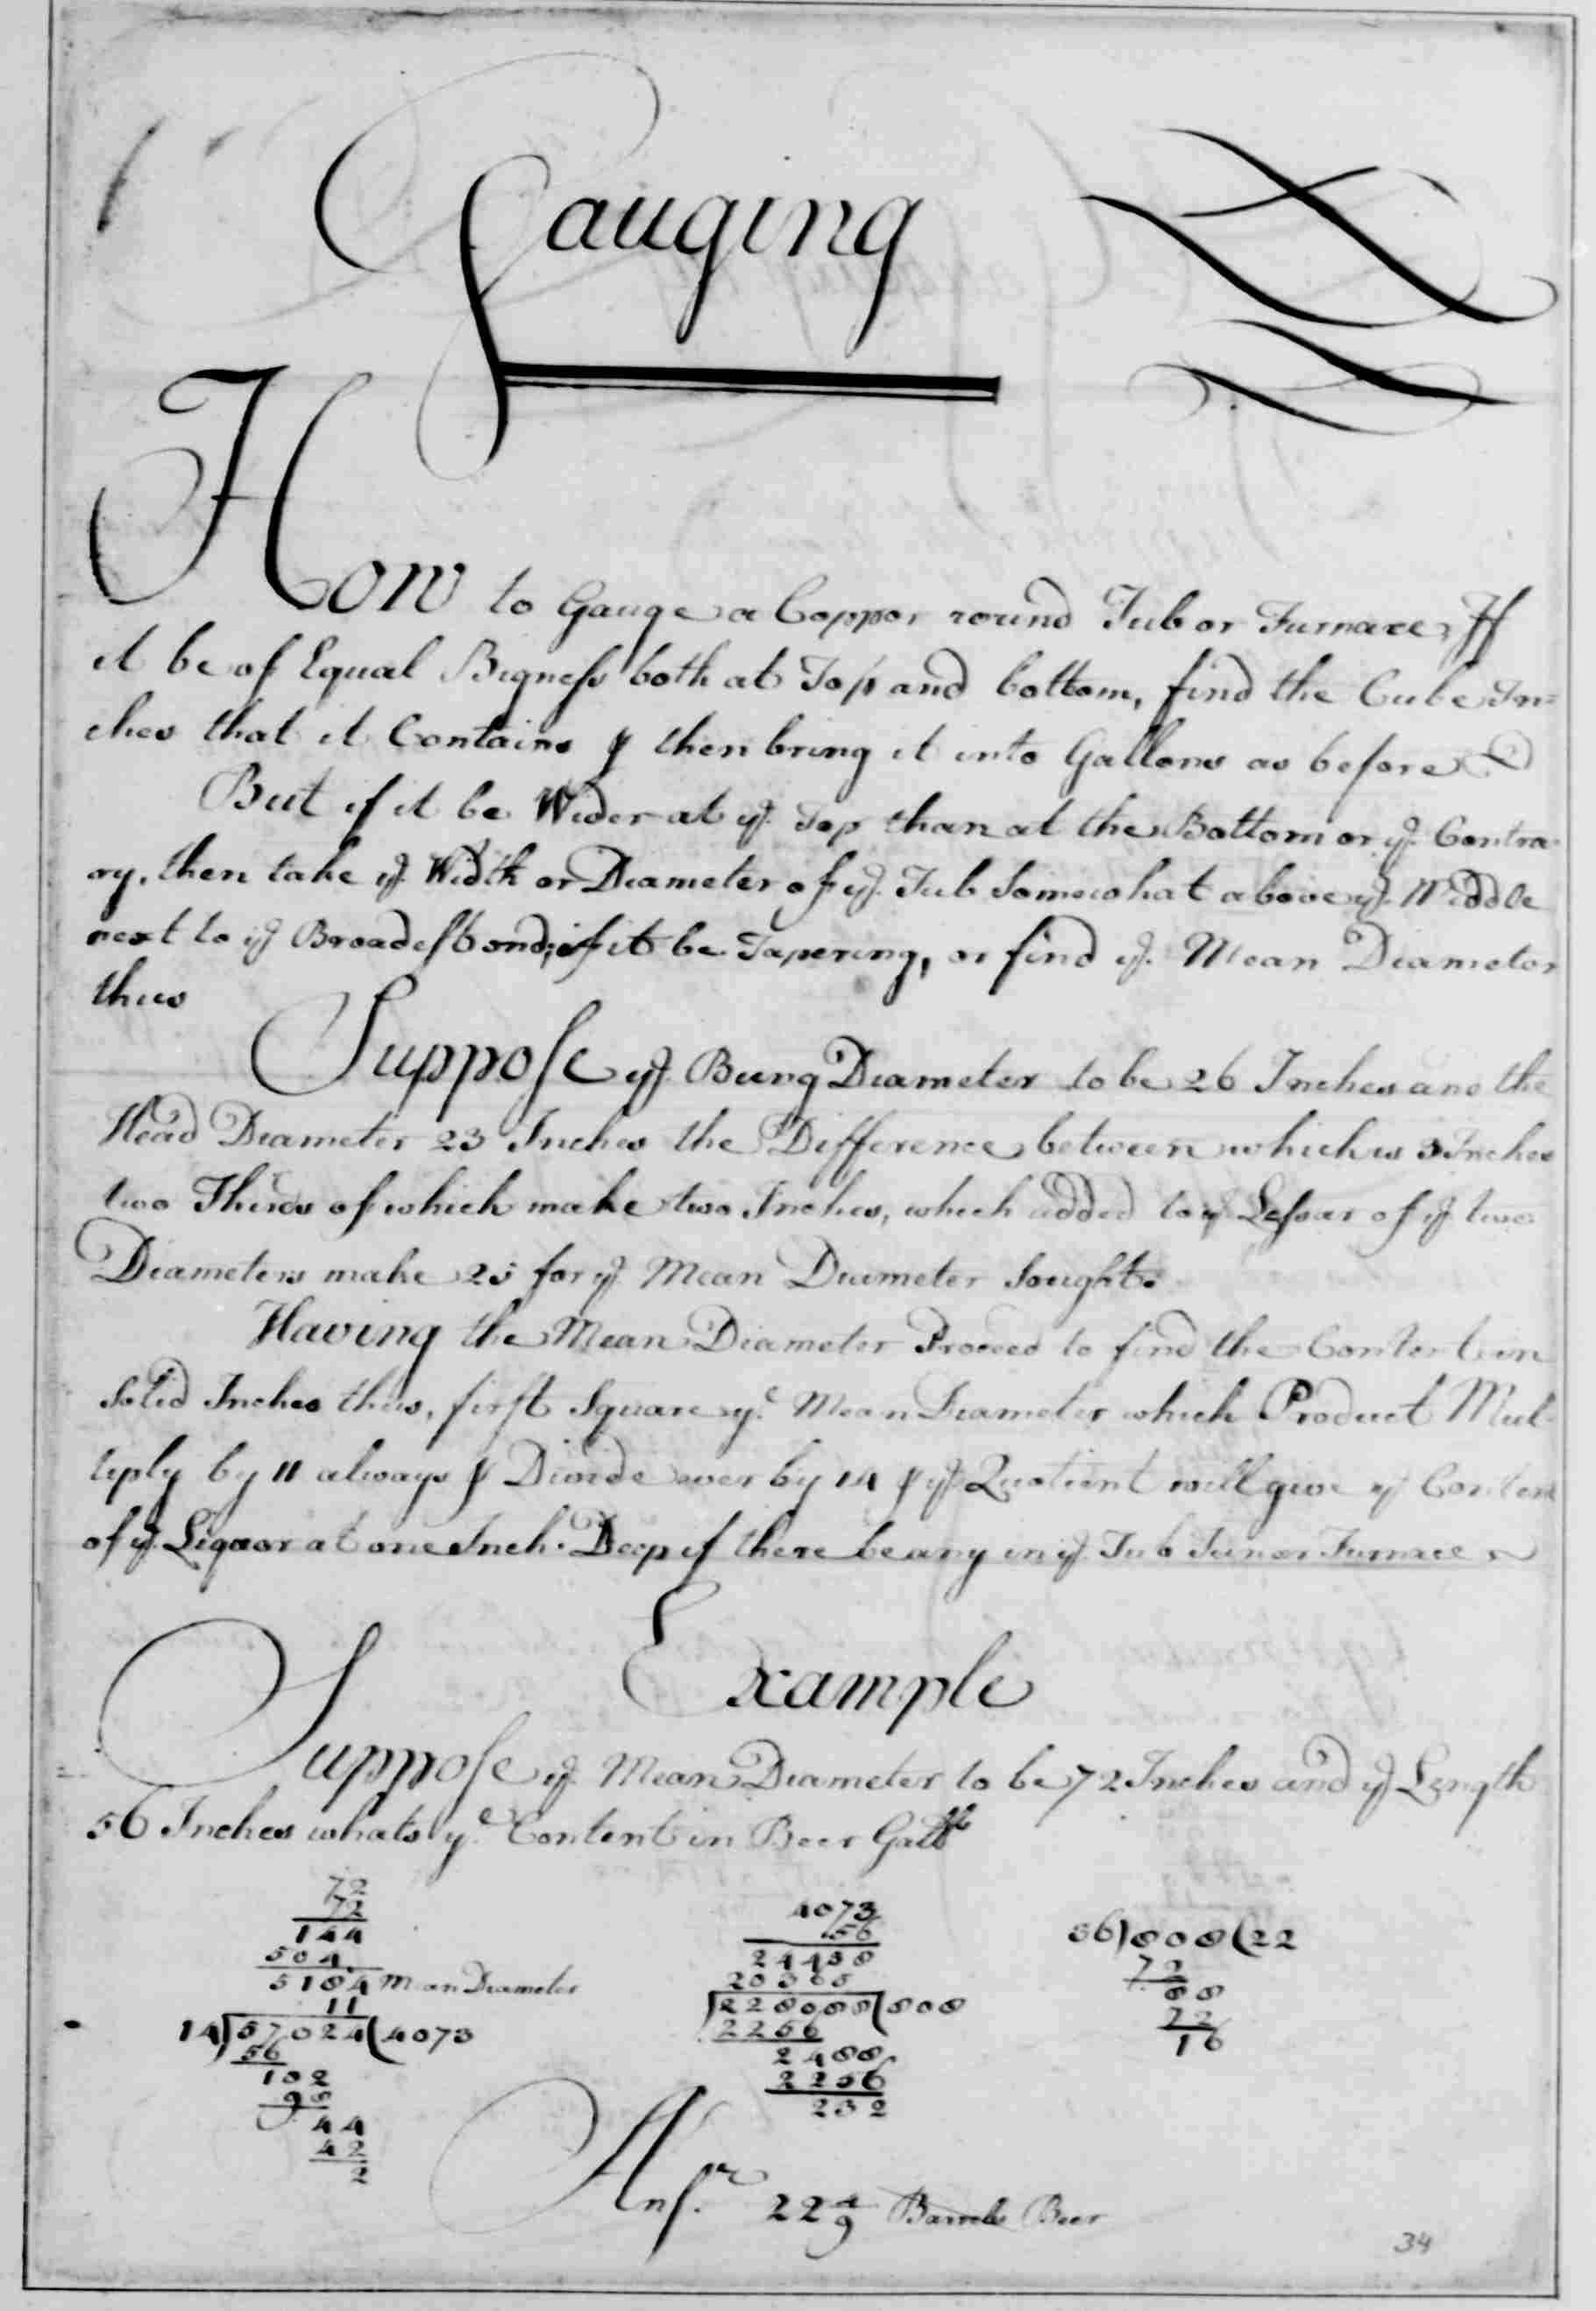 Gauging
How to Gauge a Copper round Tub or Furnace, If
it be of Equal Bigness both at Top and bottom, find the Cube In=
ches that it Contains & then bring it into Gallons as before
But if it be Wider at ye. Top than at the Bottom or ye. Contra-
ry, then take ye. Width or Diameter of ye. Tub Somewhat above ye. Middle
next to ye Broadest end; if it be Tapering, or find ye. Mean Diameter
thus
Suppose ye. Bung Diameter to be 26 Inches and the
Head Diameter 23 Inches the Difference between which is 3 Inches
two Thirds of which make two Inches, which added to ye Lessar of ye two
Diameters make 25 for ye. Mean Diameter Sought.
Having the Mean Diameter Proceed to find the Content in
Solid Inches thus, first Square ye. Mean Diameter which Product Mul-
tiply by 11 always & Divide over by 14 & ye Quotient will give ye Content
of ye. Liquor at one Inch Deep if there be any in ye. Tub Tun or Furnace
Example
Suppose ye. Mean Diameter to be 72 Inches and ye Length
56 Inches whats ye. Content in Beer
72
72
144
504
5184 Mean Diameter
11
14)57024(4073
56
102
98
44
42
2
4073
56
24438
20365
228088(808
2256
2488
2256
232
36)808(22
72
88
72
16
Ansr. 22 4/9 Barrells Beer
34